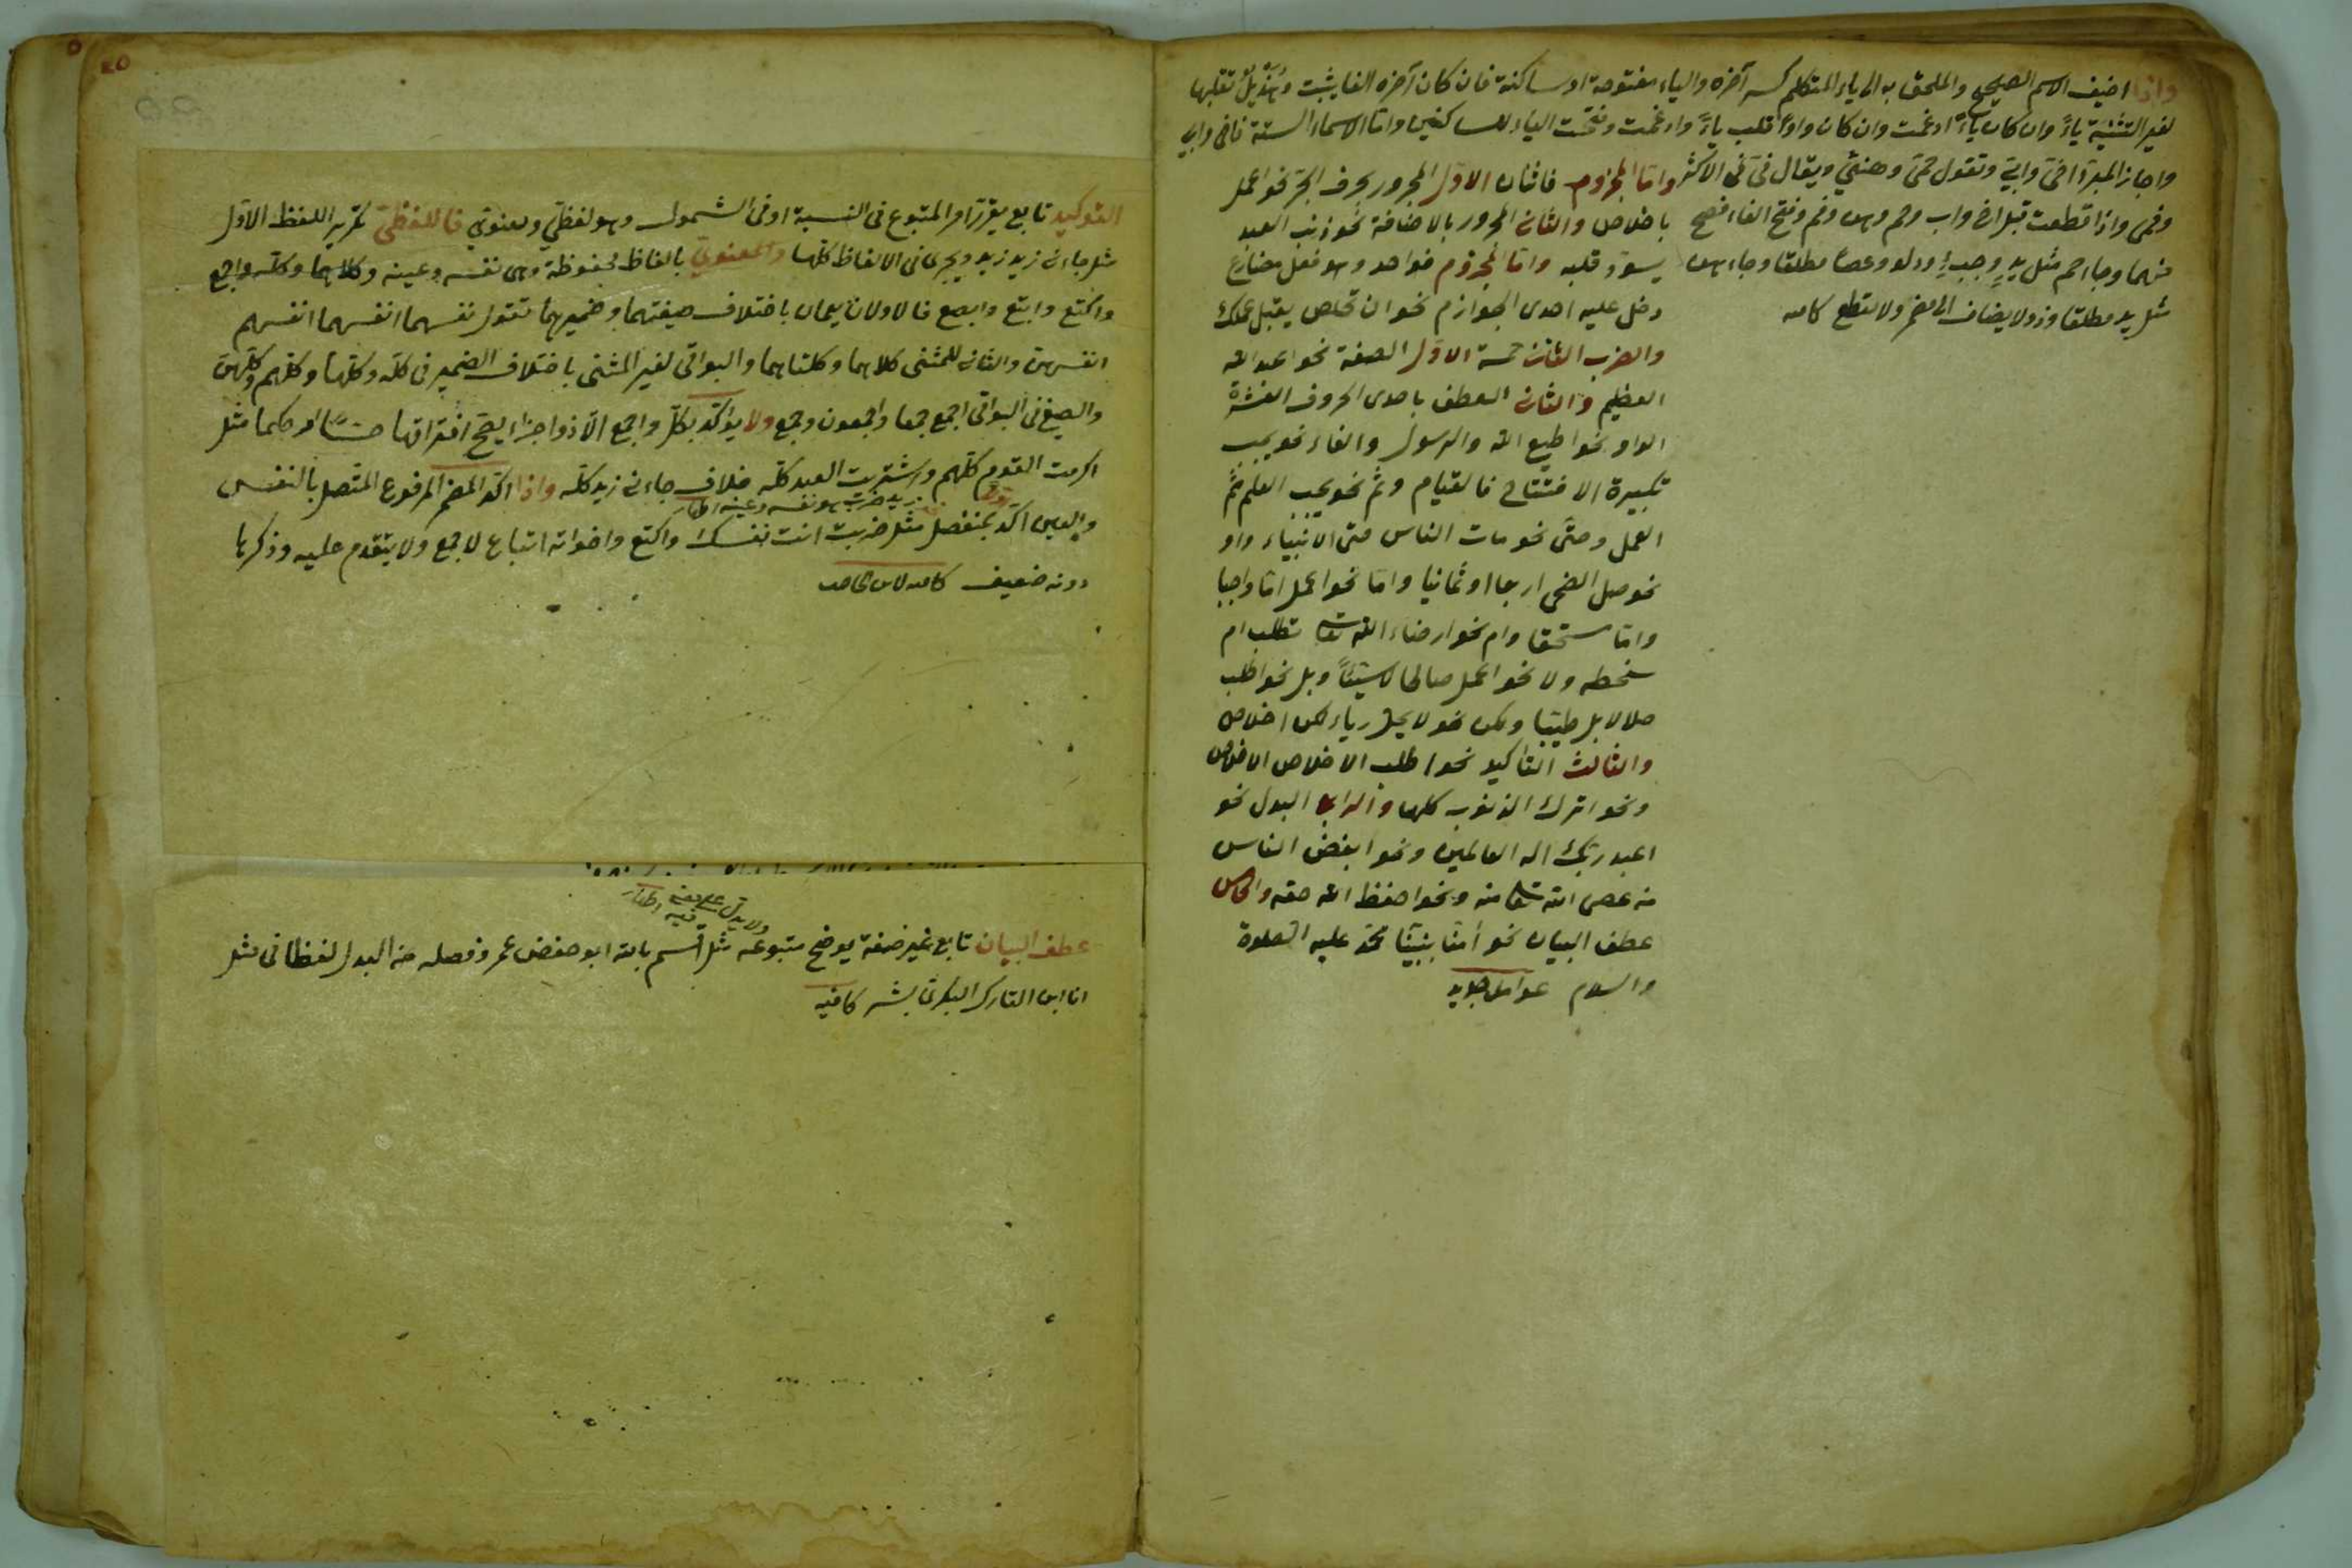 واذا اضيف الاسم الصحيح والملحق به الى ياء المتكلم كسر آخره والياء مفتوحة او ساكنة فان كان آخره الفا يثبت وهُذَيل تقلبها
لغير التثنية ياءً وان كان ياءً ادغمت وان كان واوًا قلب ياءً وادغمت وفتحت الياء للساكنين واما الاسماء الستة فاخى وابى
واجاز المبرد اخىّ وابىّ وتقول حمى وهنى ويقال فىّ فى الاكثر
وفمى واذا قطعت قيل اخ واب وحم وهن وفم وفتح الفاء افصح
منهما وجاء حم مثل يدٍ وخبءٍ ودلو وعصا مطلقا وجاء هن
مثل يد مطلقا وذو لا يضاف الى مضمر ولا يقطع كافيه
واما المجزوم فاثنان الاول المجرور بحرف الجر نحو اعمل
باخلاص والثانى المجرور بالاضافة نحو ذنب العبد
يسود قلبه واما المجزوم فواحد وهو فعل مضارع
دخل عليه احدى الجوازم نحو ان تخلص يقبل عملك
والضرب الثانى خمسة الاول الصفة نحو اعبد الله
العظيم والثانى العطف باحدى الحروف العشرة
الواو نحو اطيع الله والرسول والفاء نحو يجب
تكبيرة الافتتاح فالقيام وثم نحو يجب العلم ثم
العمل وحتى نحو مات الناس حتى الانبياء واو
نحو صل الضحى اربعا او ثمانيا واما نحو اعمل اما واجبا
واما مستحبا وام نحو ارضاء الله تعالى تطلب ام
سخطه ولا نحو اعمل صالحا لا سيئاً وبل نحو اطلب
حلالا بل طيبا ولكن نحو لا يحل رياء لكن اخلاص
والثالث التأكيد نحو اطلب الاخلاص الاخلاص
ونحو اترك الذنوب كلها والرابع البدل نحو
اعبد ربك اله العالمين ونحو ابغض الناس
من عصى الله تعالى منه ونحو احفظ الله حقه والخامس
عطف البيان نحو آمنا بنبينا محمد عليه الصلوة
والسلام عوامل جديد
٢٥
التوكيد تابع يقرر امر المتبوع فى النسبة او فى الشمول وهو لفظى ومعنوى فاللفظى تكرير اللفظ الاول
مثل جاءنى زيد زيد ويجرى فى الالفاظ كلها والمعنوى بالفاظ محفوظة وهى نفسه وعينه وكلاهما وكله واجمع
واكتع وابتع وابصع فالاولان يعمان باختلاف صيغتهما وضميرهما تقول نفسهما انفسهما انفسهم
انفسهن والثانى للمثنى كلاهما وكلتاهما والبواقى لغير المثنى باختلاف الضمير فى كله وكلها وكلهم وكلهن
والصيغ فى البواقى اجمع جمعا واجمعون وجمع ولا يؤكد بكل واجمع الا ذو اجزاء يصح افتراقها حسًا او حكما مثل
اكرمت القوم كلهم واشتريت العبد كله خلاف جاءنى زيد كله واذا اكد المضمر المرفوع المتصل بالنفس
زيد ضرب هو نفسه وعينه
والعين اكد بمنفصل مثل ضربت انت نفسك واكتع واخواته اتباع لاجمع ولا يتقدم عليه وذكرها
دونه ضعيف كافيه لابن الحاجب
عطف البيان تابع غير صفة يوضح متبوعه مثل اقسم بالله ابو حفص عمر وفصله من البدل لفظا فى مثل
انا ابن التارك البكرى بشر كافيه